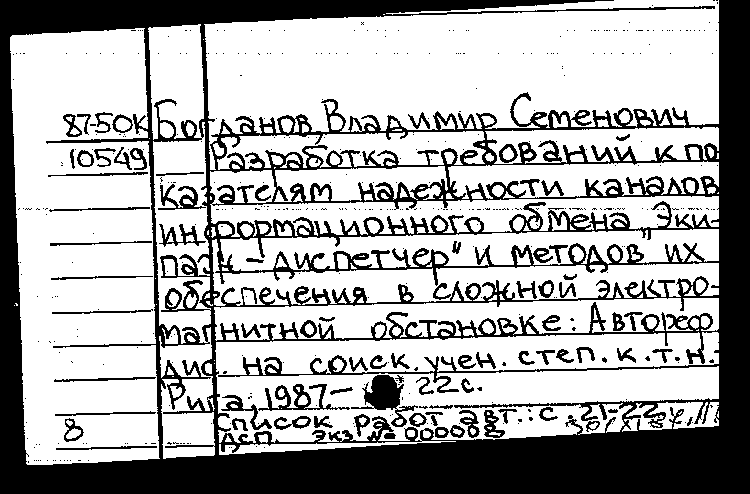 87-50К Богданов, Владимир Семенович
10549 Разработка требований к по
казателям надежности каналов
информационного обмена „Эки-
паж - диспетчер" и методов их
обеспечения в сложной электро-
магнитной обстановке: Автореф.
дис. на соиск. учен. степ. к.т.н.
Рига, 1987.- 22 с.
Список работ авт.: с. 21-22
8 ДСП. экз № 000008